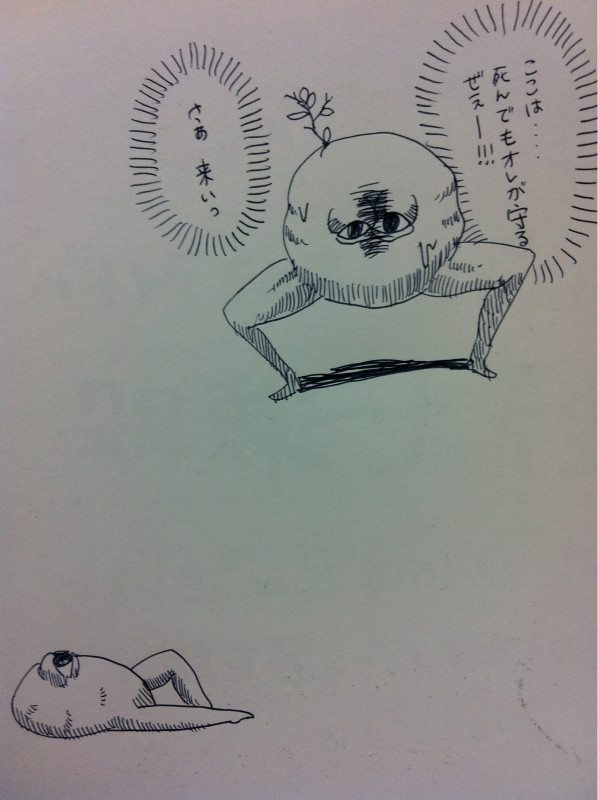 ここは....
死んでもオレが守る
ぜぇー!!!
さぁ 来いっ